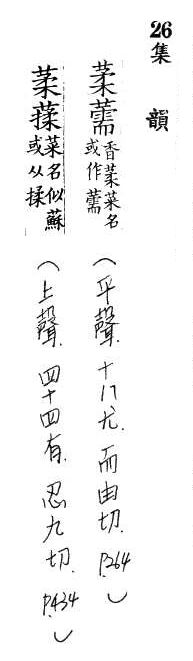 26 集韻
葇薷 香葇菜名 或作薷 (平聲. 十八尤. 而由切. P.264)
葇 菜名似蘇 或从揉 (上聲. 四十四有. 忍九切. P.434)